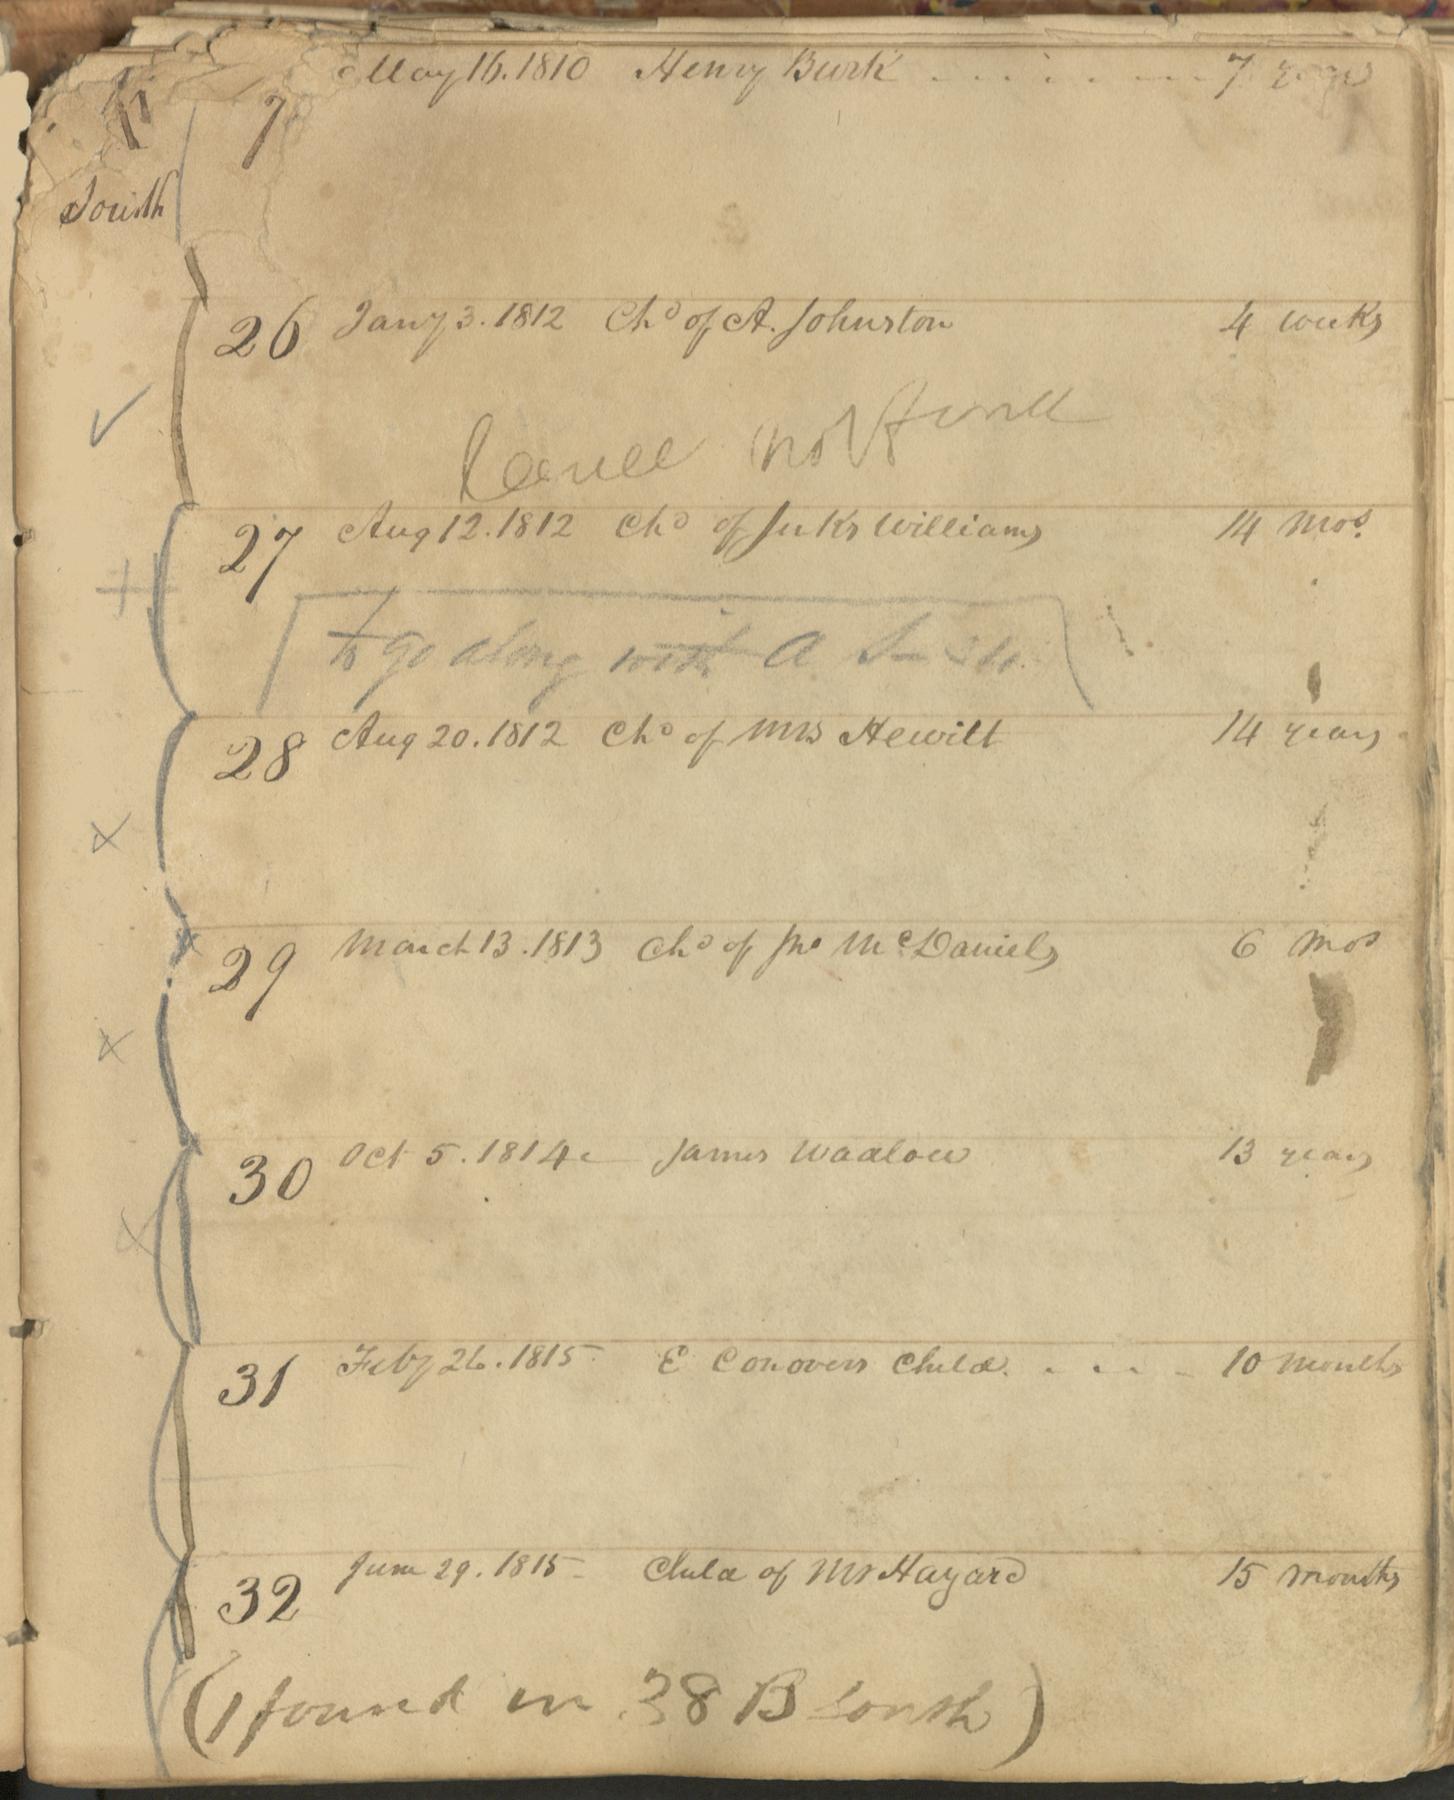 May 16. 1810 Henry Burk 7 years
7
South
26 Jany 3. 1812 Chd of A. Johnston 4 weeks
not
27 Aug 12. 1812 Chd of Jnks Williams 14 Mos.
to go along with A
28 Aug 20. 1812 Chd of Mrs Hewitt 14 years
29 March 13. 1813 Chd of Jno McDaniels 6 Mos
30 Oct 5. 1814 James Wadlow 13 years
31 Feby 26. 1815 E Conovers Child. 10 Months
32 June 29. 1815 Child of Mr Hayard 15 Months
(1 found in 38 B South)